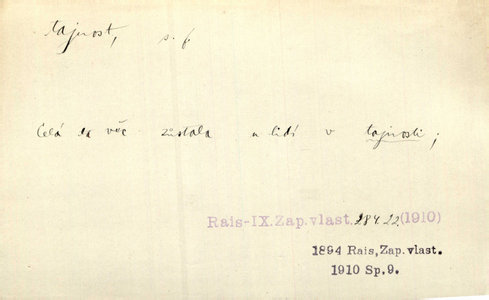 tajnost, s. f
Celá ta věc zůstala u lidí v tajnosti;
Rais-IX.Zap.vlast. 284 22 (1910)
1894 Rais, Zap. vlast.
1910 Sp. 9.